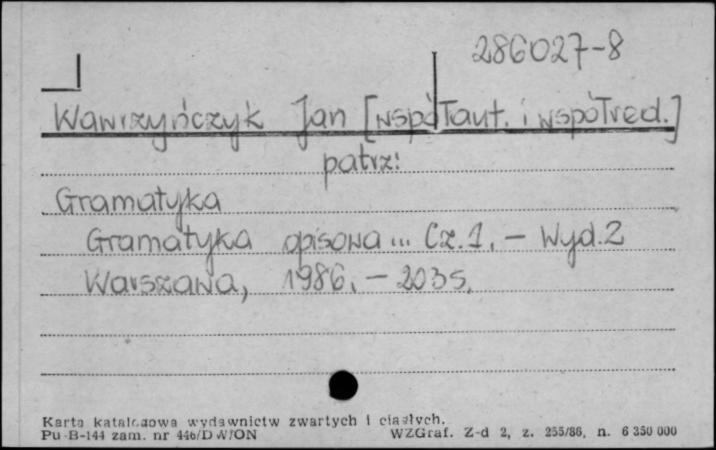 286027-8
Wawrzyńczyk Jan [współaut. i współred.]
patrz:
Gramatyka
Gramatyka opisowa... Cz.1. - Wyd.2
Warszawa, 1986. - 203 s.
Karta katalogowa wydawnictw zwartych i ciągłych.
Pu-B-144 zam. nr 446/DW/ON WZGraf. Z-d 2, z. 255/86, n. 6 350 000